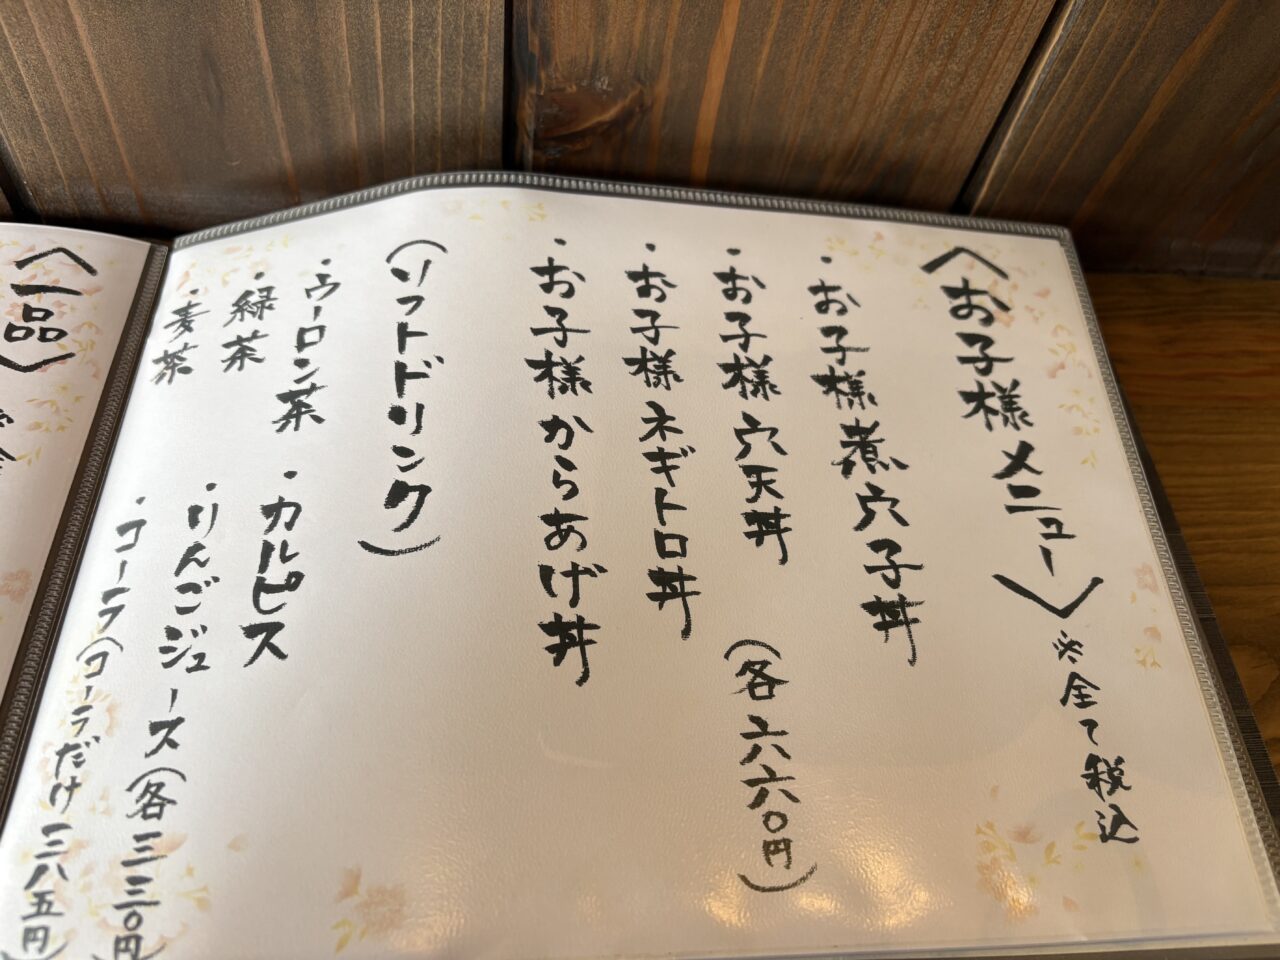 〈お子様メニュー〉※全て税込
・お子様煮穴子丼
・お子様穴天丼
・お子様ネギトロ丼
・お子様からあげ丼
(各六六〇円)
(ソフトドリンク)
・ウーロン茶
・緑茶
・麦茶
・カルピス
・りんごジュース(各三三〇円)
・コーラ(コーラだけ三八五円)
〈一品〉